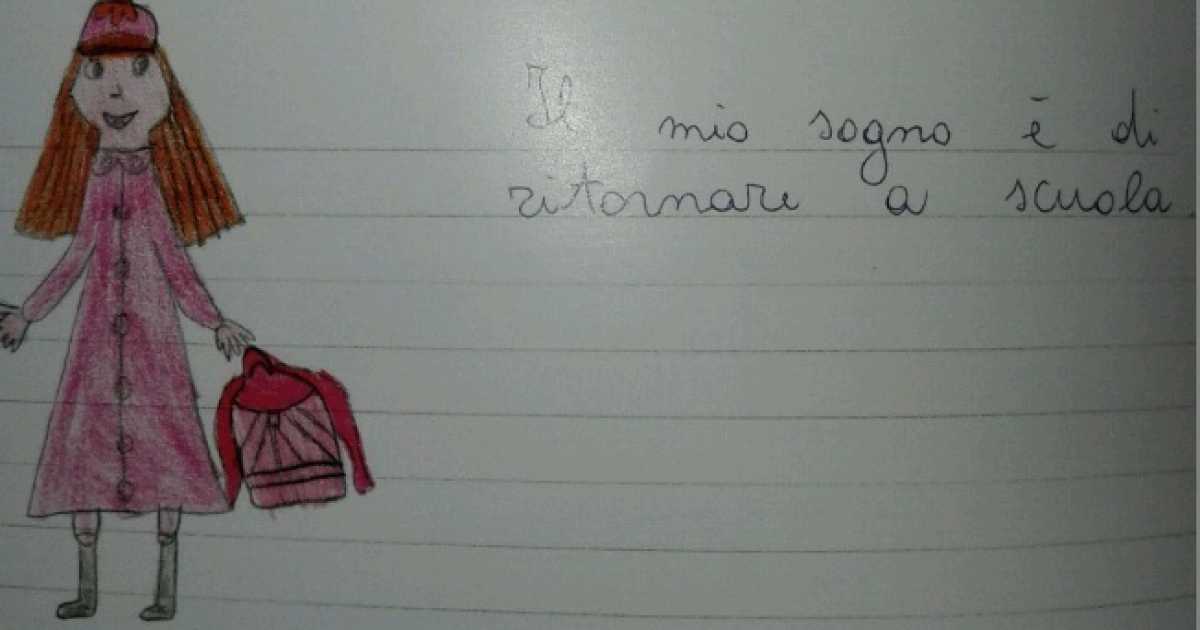 Il mio sogno è di
ritornare a scuola.